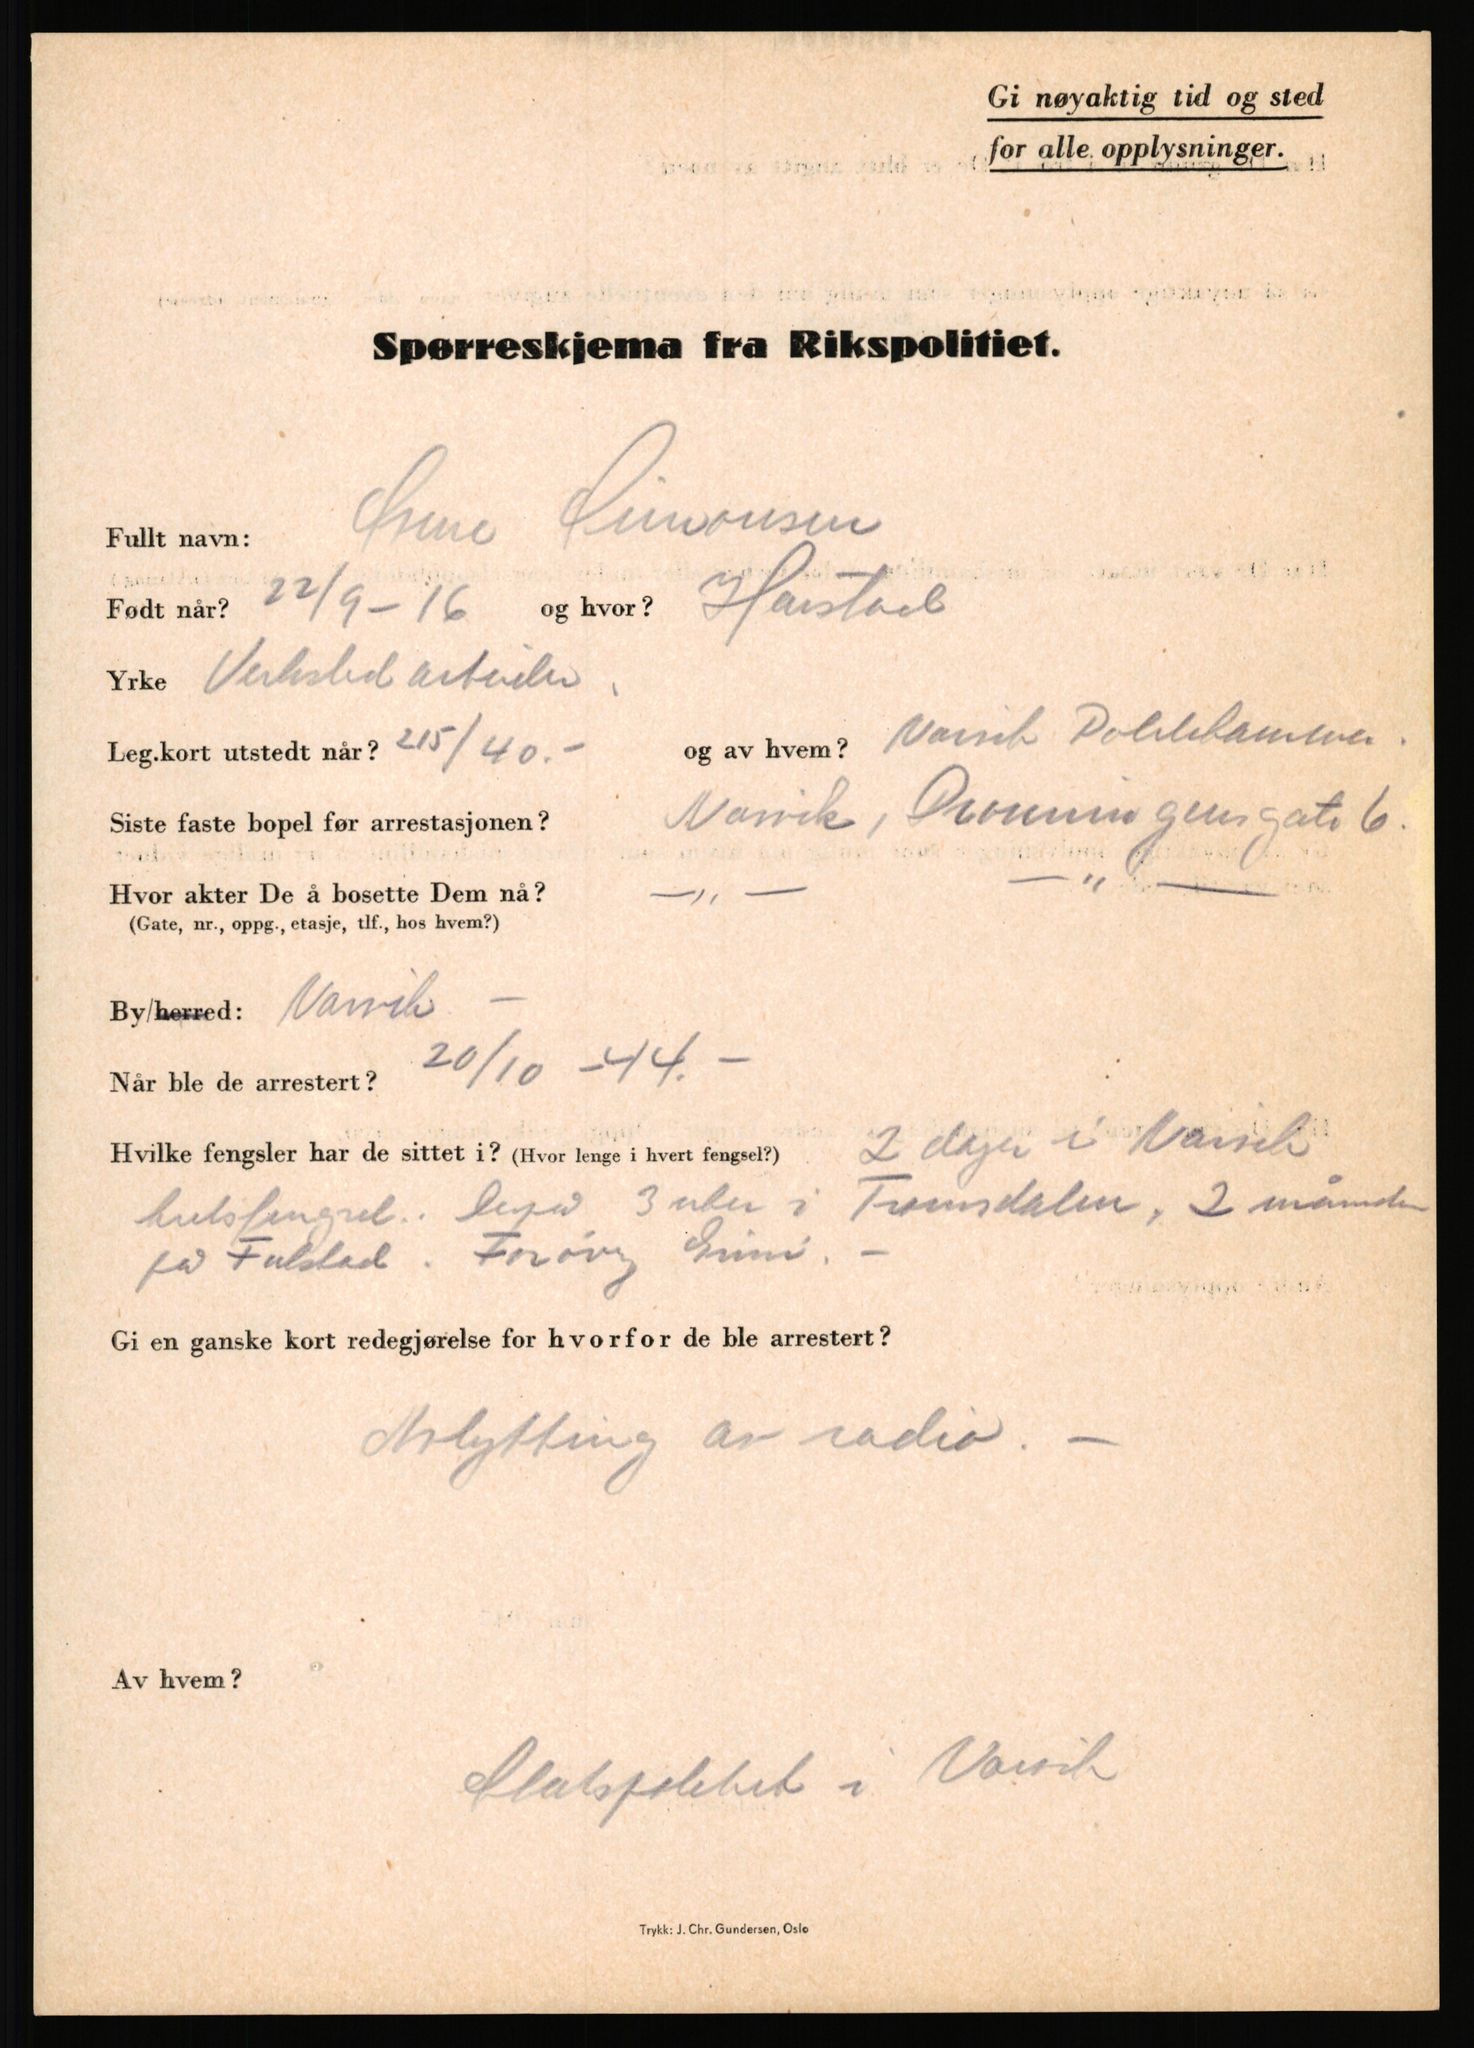 Gi nøyaktig tid og sted
for alle opplysninger.
Spørreskjema fra Rikspolitiet.
Fullt navn: Simonsen
Født når? 22/9-16 og hvor? Harstad
Yrke Verksted arbeider.
Leg.kort utstedt når? 215/40.- og av hvem? Narvik Politikammer.
Siste faste bopel før arrestasjonen? Narvik, Dronningensgate 6.
Hvor akter De å bosette Dem nå? —„— —„—
(Gate, nr., oppg., etasje, tlf., hos hvem?)
By/herred: Narvik -
Når ble de arrestert? 20/10 -44.-
Hvilke fengsler har de sittet i? (Hvor lenge i hvert fengsel?) 2 dager i Narvik
kretsfengsel. 3 uker i Tromsdalen, 2 måneder
på Falstad. Forøvrig Grini. -
Gi en ganske kort redegjørelse for hvorfor de ble arrestert?
Avlytting av radio. -
Av hvem?
Statspolitiet i Narvik
Trykk: J. Chr. Gundersen, Oslo